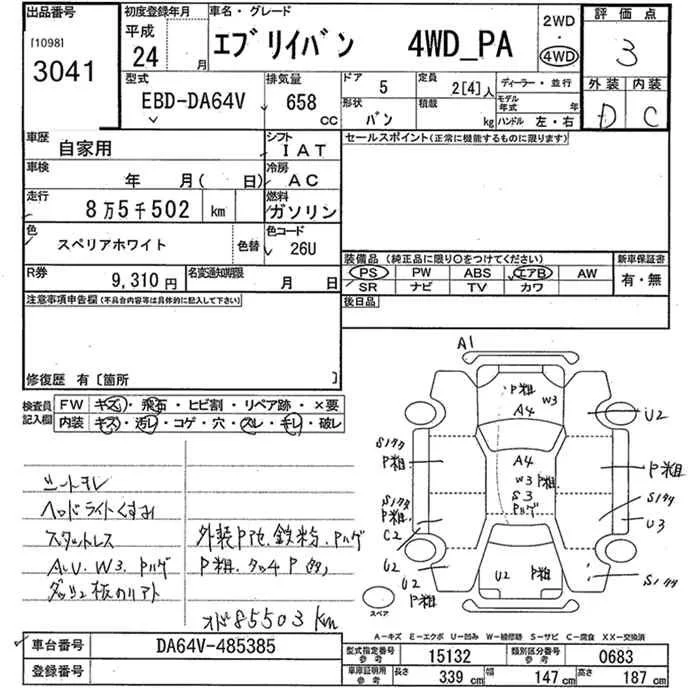 出品番号
[1098]
3041
初度登録年月
平成
24 月
車名・グレード
エブリイバン 4WD_PA
2WD
・
4WD
評価点
3
外装 内装
D C
型式
EBD-DA64V
排気量
658 CC
ドア 5
形状 バン
定員 2[4]人
積載 kg
ディーラー・並行
モデル年式 年
ハンドル 左・右
車歴
自家用
シフト
IAT
車検
年 月( 日)
冷房
AC
走行
8万5千502 km
燃料
ガソリン
色
スペリアホワイト
色替
色コード
26U
R券
9,310円
名変通知期限 月 日
セールスポイント(正常に機能するものに限ります)
装備品(純正品に限り○をつけてください)
PS PW ABS エアB AW
SR ナビ TV カワ
新車保証書
有・無
後日品
注意事項申告欄(不具合内容等は具体的に記入して下さい)
修復歴 有〔箇所 〕
検査員記入欄
FW キズ・飛石・ヒビ割・リペア跡・×要
内装 キズ・汚レ・コゲ・穴・スレ・キレ・破レ
シートヨレ
ヘッドライトくすみ
スタットレス
A.U.W3.Pハゲ
ダッシュ板のリアト
外装P他.鉄粉.Pハゲ
P粗.タッチP(多)
オド85503km
A1
P粗
W3
A4
U2
A4
W3 P粗
S3
Pハゲ
Sノタタ
P粗
Sノタタ
P粗
C2
U2
U2
P粗
Sノタタ
U3
U2 P粗
Sノタタ
P粗
スペア
A−キズ E−エクボ U−凹み W−補修跡 S−サビ C−腐食 XX−交換済
車台番号 DA64V-485385
登録番号
型式指定番号 参考 15132
類別区分番号 参考 0683
車庫証明用 参考 長さ 339 cm 幅 147 cm 高さ 187 cm